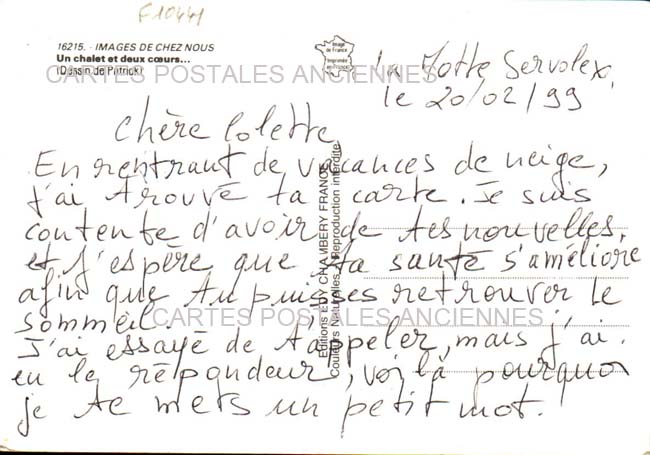 F10441
16215. - IMAGES DE CHEZ NOUS
Un chalet et deux cœurs...
(Dessin de Patrick)
Image de France
Imprimée en France
CARTES POSTALES ANCIENNES
La Motte Servolex,
le 20/02/99
Chère Colette
En rentrant de vacances de neige,
j'ai trouvé ta carte. Je suis
contente d'avoir de tes nouvelles,
et j'espère que ta santé s'améliore
afin que tu puisses retrouver le
sommeil.
J'ai essayé de t'appeler, mais j'ai
eu le répondeur, voilà pourquoi
je te mets un petit mot.
CARTES POSTALES ANCIENNES
Editions EDY CHAMBERY FRANCE
Couleurs Naturelles - Reproduction interdite